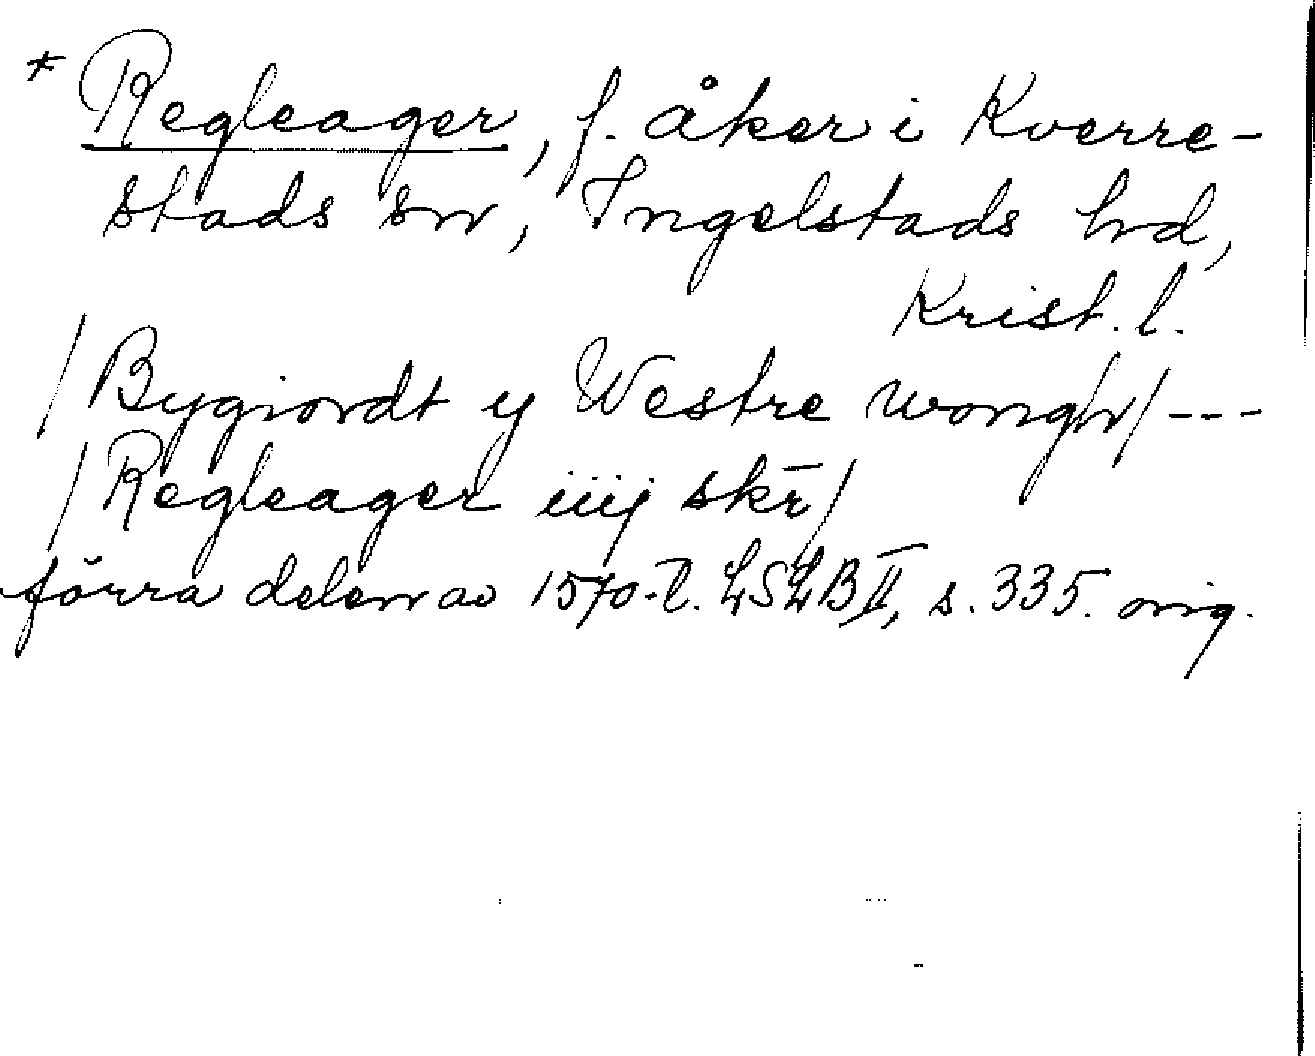 * Regleager, f. åker i Kverre-
stads sn, Ingelstads hd,
Krist. l.
/Bygiordt y Westre wongh/---
/Regleager iiij skr̄/
förra delen av 1570-t. LSLB II, s. 335. orig.